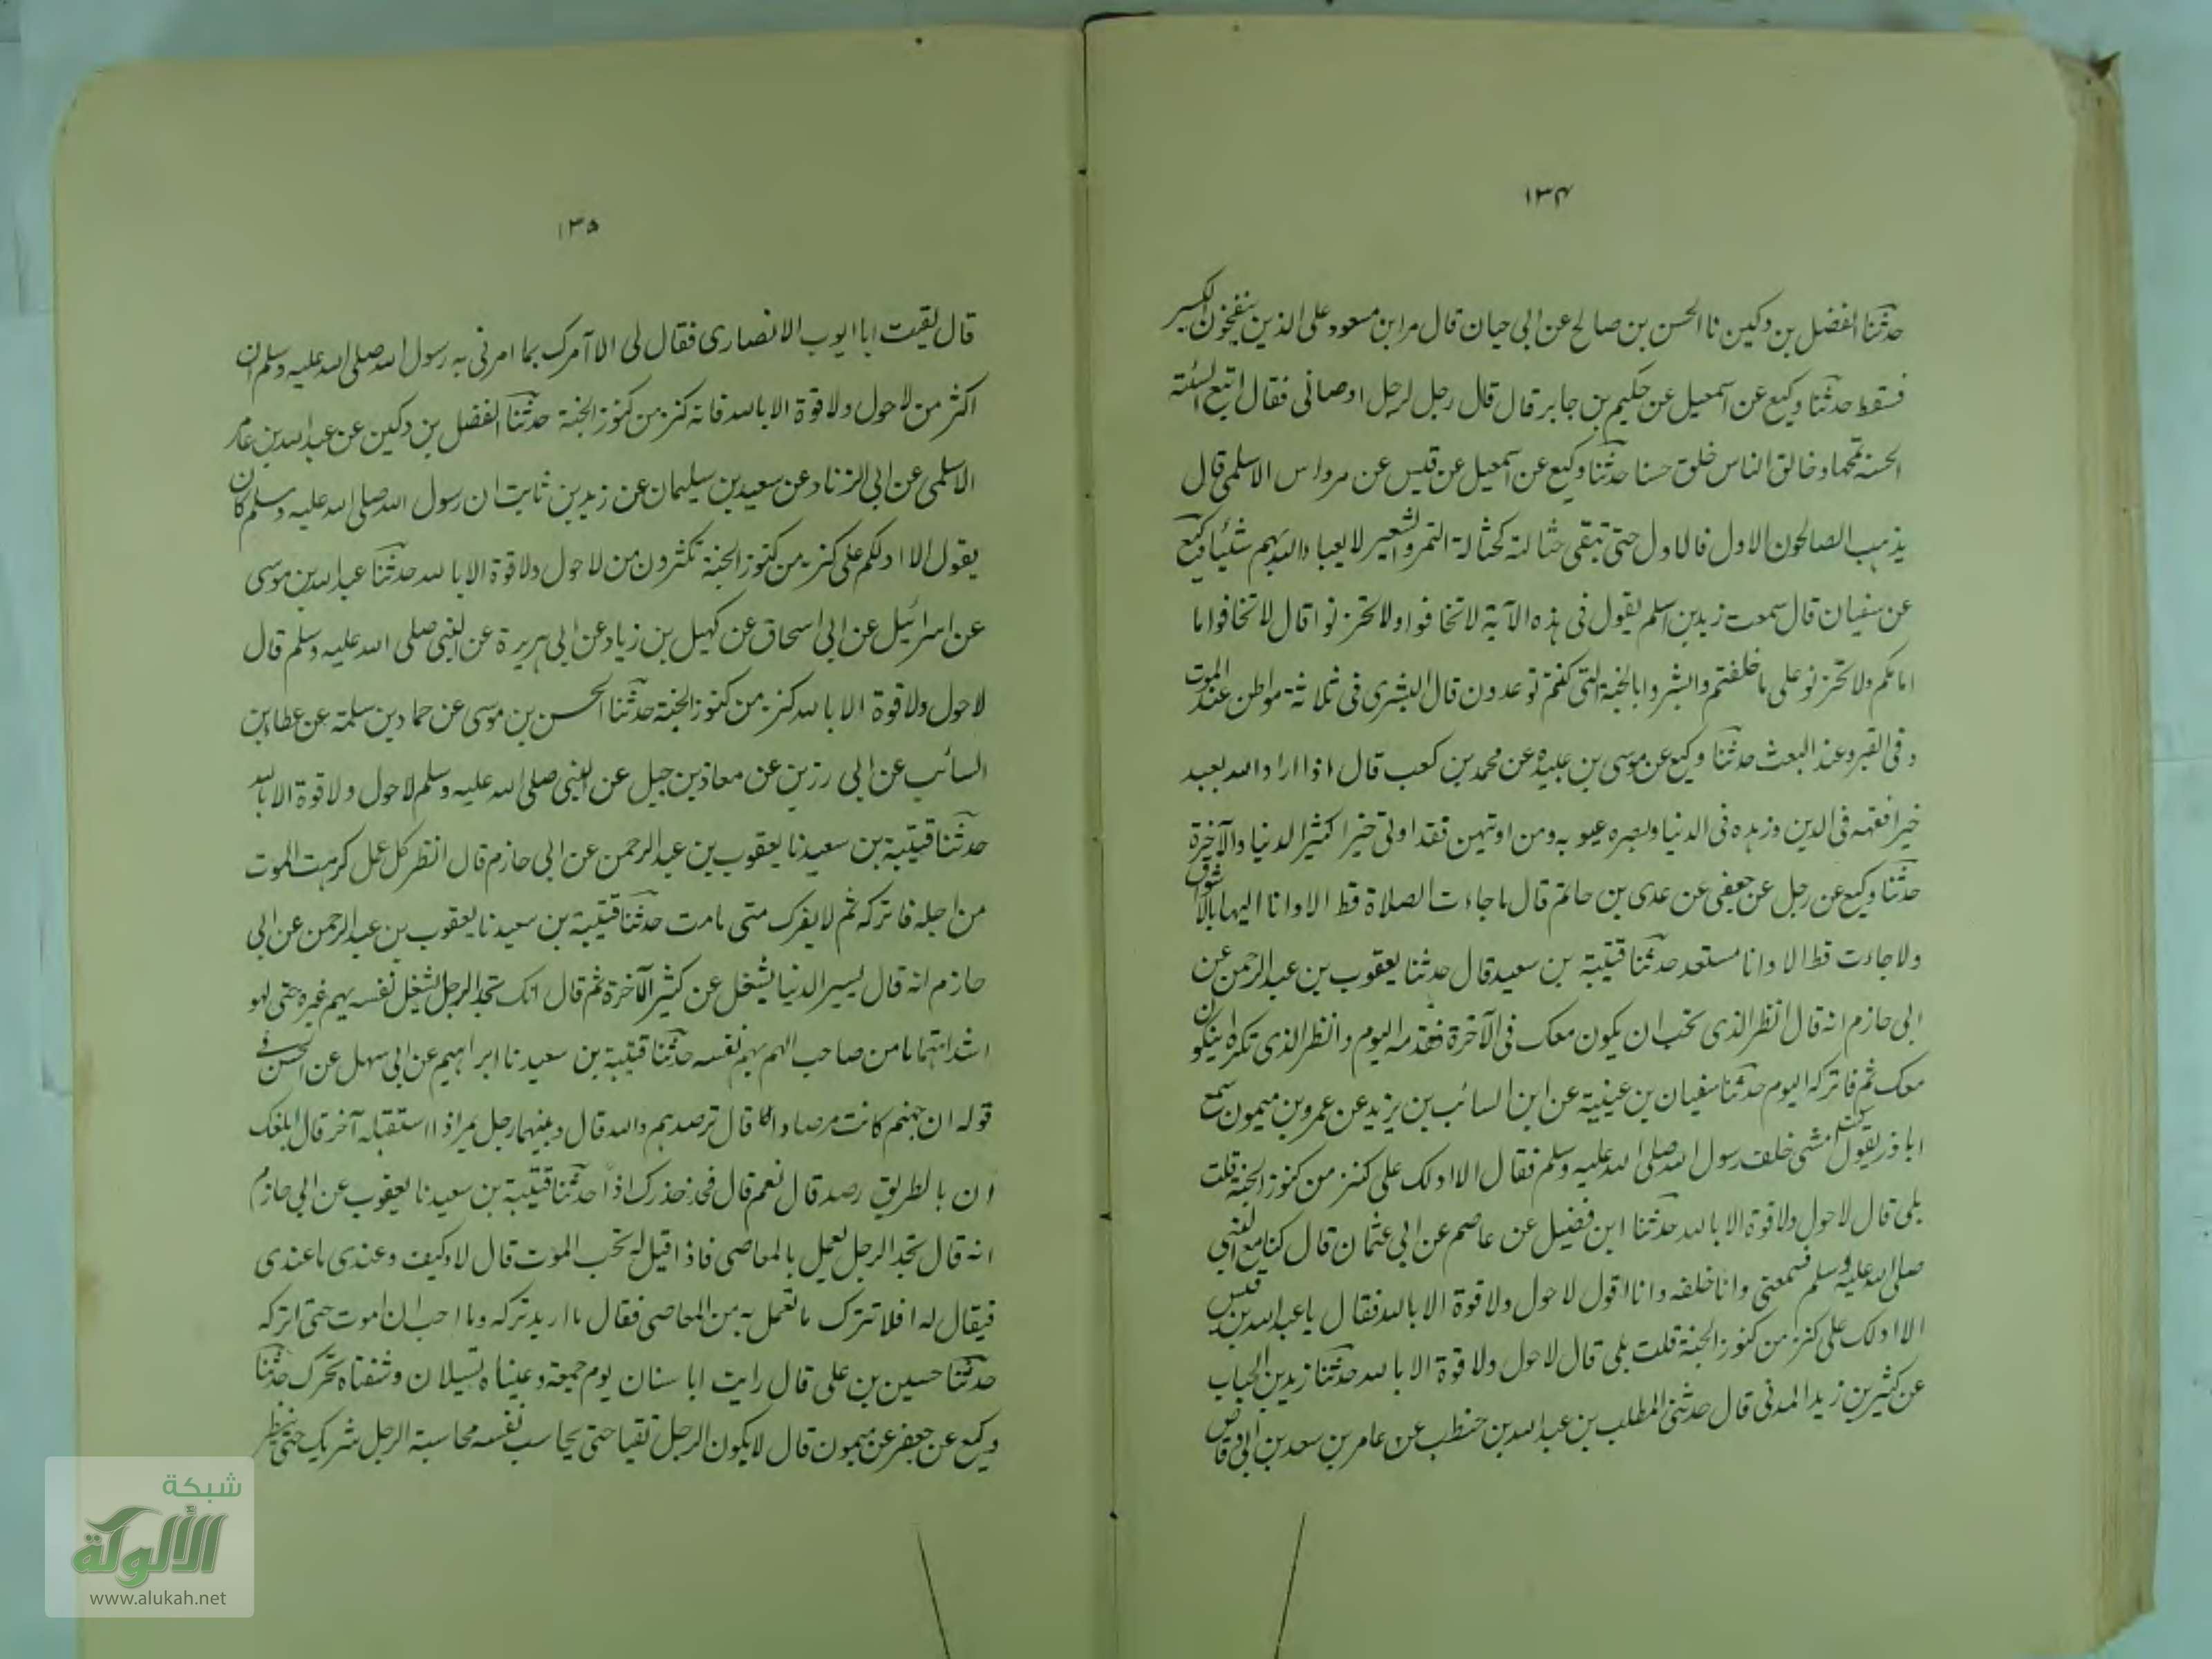 ١٣٤
حدثنا الفضل بن دكين نا الحسن بن صالح عن ابي حيان قال مر ابن مسعود على الذين ينفخون الكير
فسقط حدثنا وكيع عن اسمعيل عن حكيم بن جابر قال قال رجل لرجل اوصاني فقال اتبع السئة
الحسنة تمحها وخالق الناس خلق حسنا حدثنا وكيع عن اسمعيل عن قيس عن مرداس الاسلمي قال
يذهب الصالحون الاول فالاول حتى تبقى حثالة كحثالة التمر والشعير لا يعبا الله بهم شئيا وكيع
عن سفيان قال سمعت زيد بن اسلم يقول في هذه الآية لا تخافوا ولا تحزنوا قال لا تخافوا ما
امامكم ولا تحزنو على ما خلفتم وابشروا بالجنة التي كنتم توعدون قال البشرى في ثلاثة مواطن عند الموت
وفي القبر وعند البعث حدثنا وكيع عن موسى بن عبيدة عن محمد بن كعب قال اذا اراد الله بعبد
خيرا فقهه في الدين وزهده في الدنيا وبصره عيوبه ومن اوتيهن فقد اوتي خيرا كثيرا لدنيا والآخرة
حدثنا وكيع عن رجل عن جعفي عن عدي بن حاتم قال ما جاءت الصلاة قط الا وانا اليها بالاشوق
ولا جاءت قط الا وانا مستعد حدثنا قتيبة بن سعيد قال حدثنا يعقوب بن عبد الرحمن عن
ابي حازم انه قال انظر الذي تحب ان يكون معك في الآخرة فقدمه اليوم وانظر الذي تكره ان يكون
معك ثم فاتركه اليوم حدثنا سفيان بن عيينة عن ابن السائب بن يزيد عن عمرو بن ميمون سمع
ابا ذر يقول كنت امشي خلف رسول الله صلى الله عليه وسلم فقال الا ادلك على كنز من كنوز الجنة قلت
بلى قال لا حول ولا قوة الا بالله حدثنا ابن فضيل عن عاصم عن ابي عثمان قال كنا مع النبي
صلى الله عليه وسلم فسمعني وانا خلفه وانا اقول لا حول ولا قوة الا بالله فقال يا عبد الله بن قيس
الا ادلك على كنز من كنوز الجنة قلت بلى قال لا حول ولا قوة الا بالله حدثنا زيد بن الحباب
عن كثير بن زيد المدني قال حدثني المطلب بن عبد الله بن حنطب عن عامر بن سعد بن ابي وقاص
١٣٥
قال لقيت ابا ايوب الانصاري فقال لي الا آمرك بما امرني به رسول الله صلى الله عليه وسلم ان
اكثر من لا حول ولا قوة الا بالله فانه كنز من كنوز الجنة حدثنا الفضل بن دكين عن عبد الله بن عامر
الاسلمي عن ابي الزناد عن سعيد بن سليمان عن زيد بن ثابت ان رسول الله صلى الله عليه وسلم كان
يقول الا ادلكم على كنز من كنوز الجنة تكثرون من لا حول ولا قوة الا بالله حدثنا عبد الله بن موسى
عن اسرائيل عن ابي اسحاق عن كهيل بن زياد عن ابي هريرة عن النبي صلى الله عليه وسلم قال
لا حول ولا قوة الا بالله كنز من كنوز الجنة حدثنا الحسن بن موسى عن حماد بن سلمة عن عطا بن
السائب عن ابي رزين عن معاذ بن جبل عن النبي صلى الله عليه وسلم لا حول ولا قوة الا بالله
حدثنا قتيبة بن سعيد نا يعقوب بن عبد الرحمن عن ابي حازم قال انظر كل عمل كرهت الموت
من اجله فاتركه ثم لا يضرك متى مامت حدثنا قتيبة بن سعيد نا يعقوب بن عبد الرحمن عن ابي
حازم انه قال يسير الدنيا يشغل عن كثير الآخرة ثم قال انك تجد الرجل يشغل نفسه بهم غيره حتى لهو
اشد اهتماما من صاحب الهم بهم نفسه حدثنا قتيبة بن سعيد نا ابراهيم عن ابي سهل عن الحسن في
قوله ان جهنم كانت مرصادا قال ترصدهم والله قال وبينهما رجل يمر اذا استقبله آخر قال ابلغك
ان بالطريق رصد قال نعم قال فخذ حذرك اذا حدثنا قتيبة بن سعيد نا يعقوب عن ابي حازم
انه قال تجد الرجل يعمل بالمعاصي فاذا قيل له تحب الموت قال لا وكيف وعندي ما عندي
فيقال له افلا تترك ما تعمل به من المعاصي فقال ما اريد تركه وما احب ان اموت حتى اتركه
حدثنا حسين بن علي قال رايت ابا سنان يوم جمعة وعيناه تسيلان وشفتاه تحرك حدثنا
وكيع عن جعفر عن ميمون قال لا يكون الرجل تقيا حتى يحاسب نفسه محاسبة الرجل شريك حتى ينظر
شبكة
الألوكة
www.alukah.net